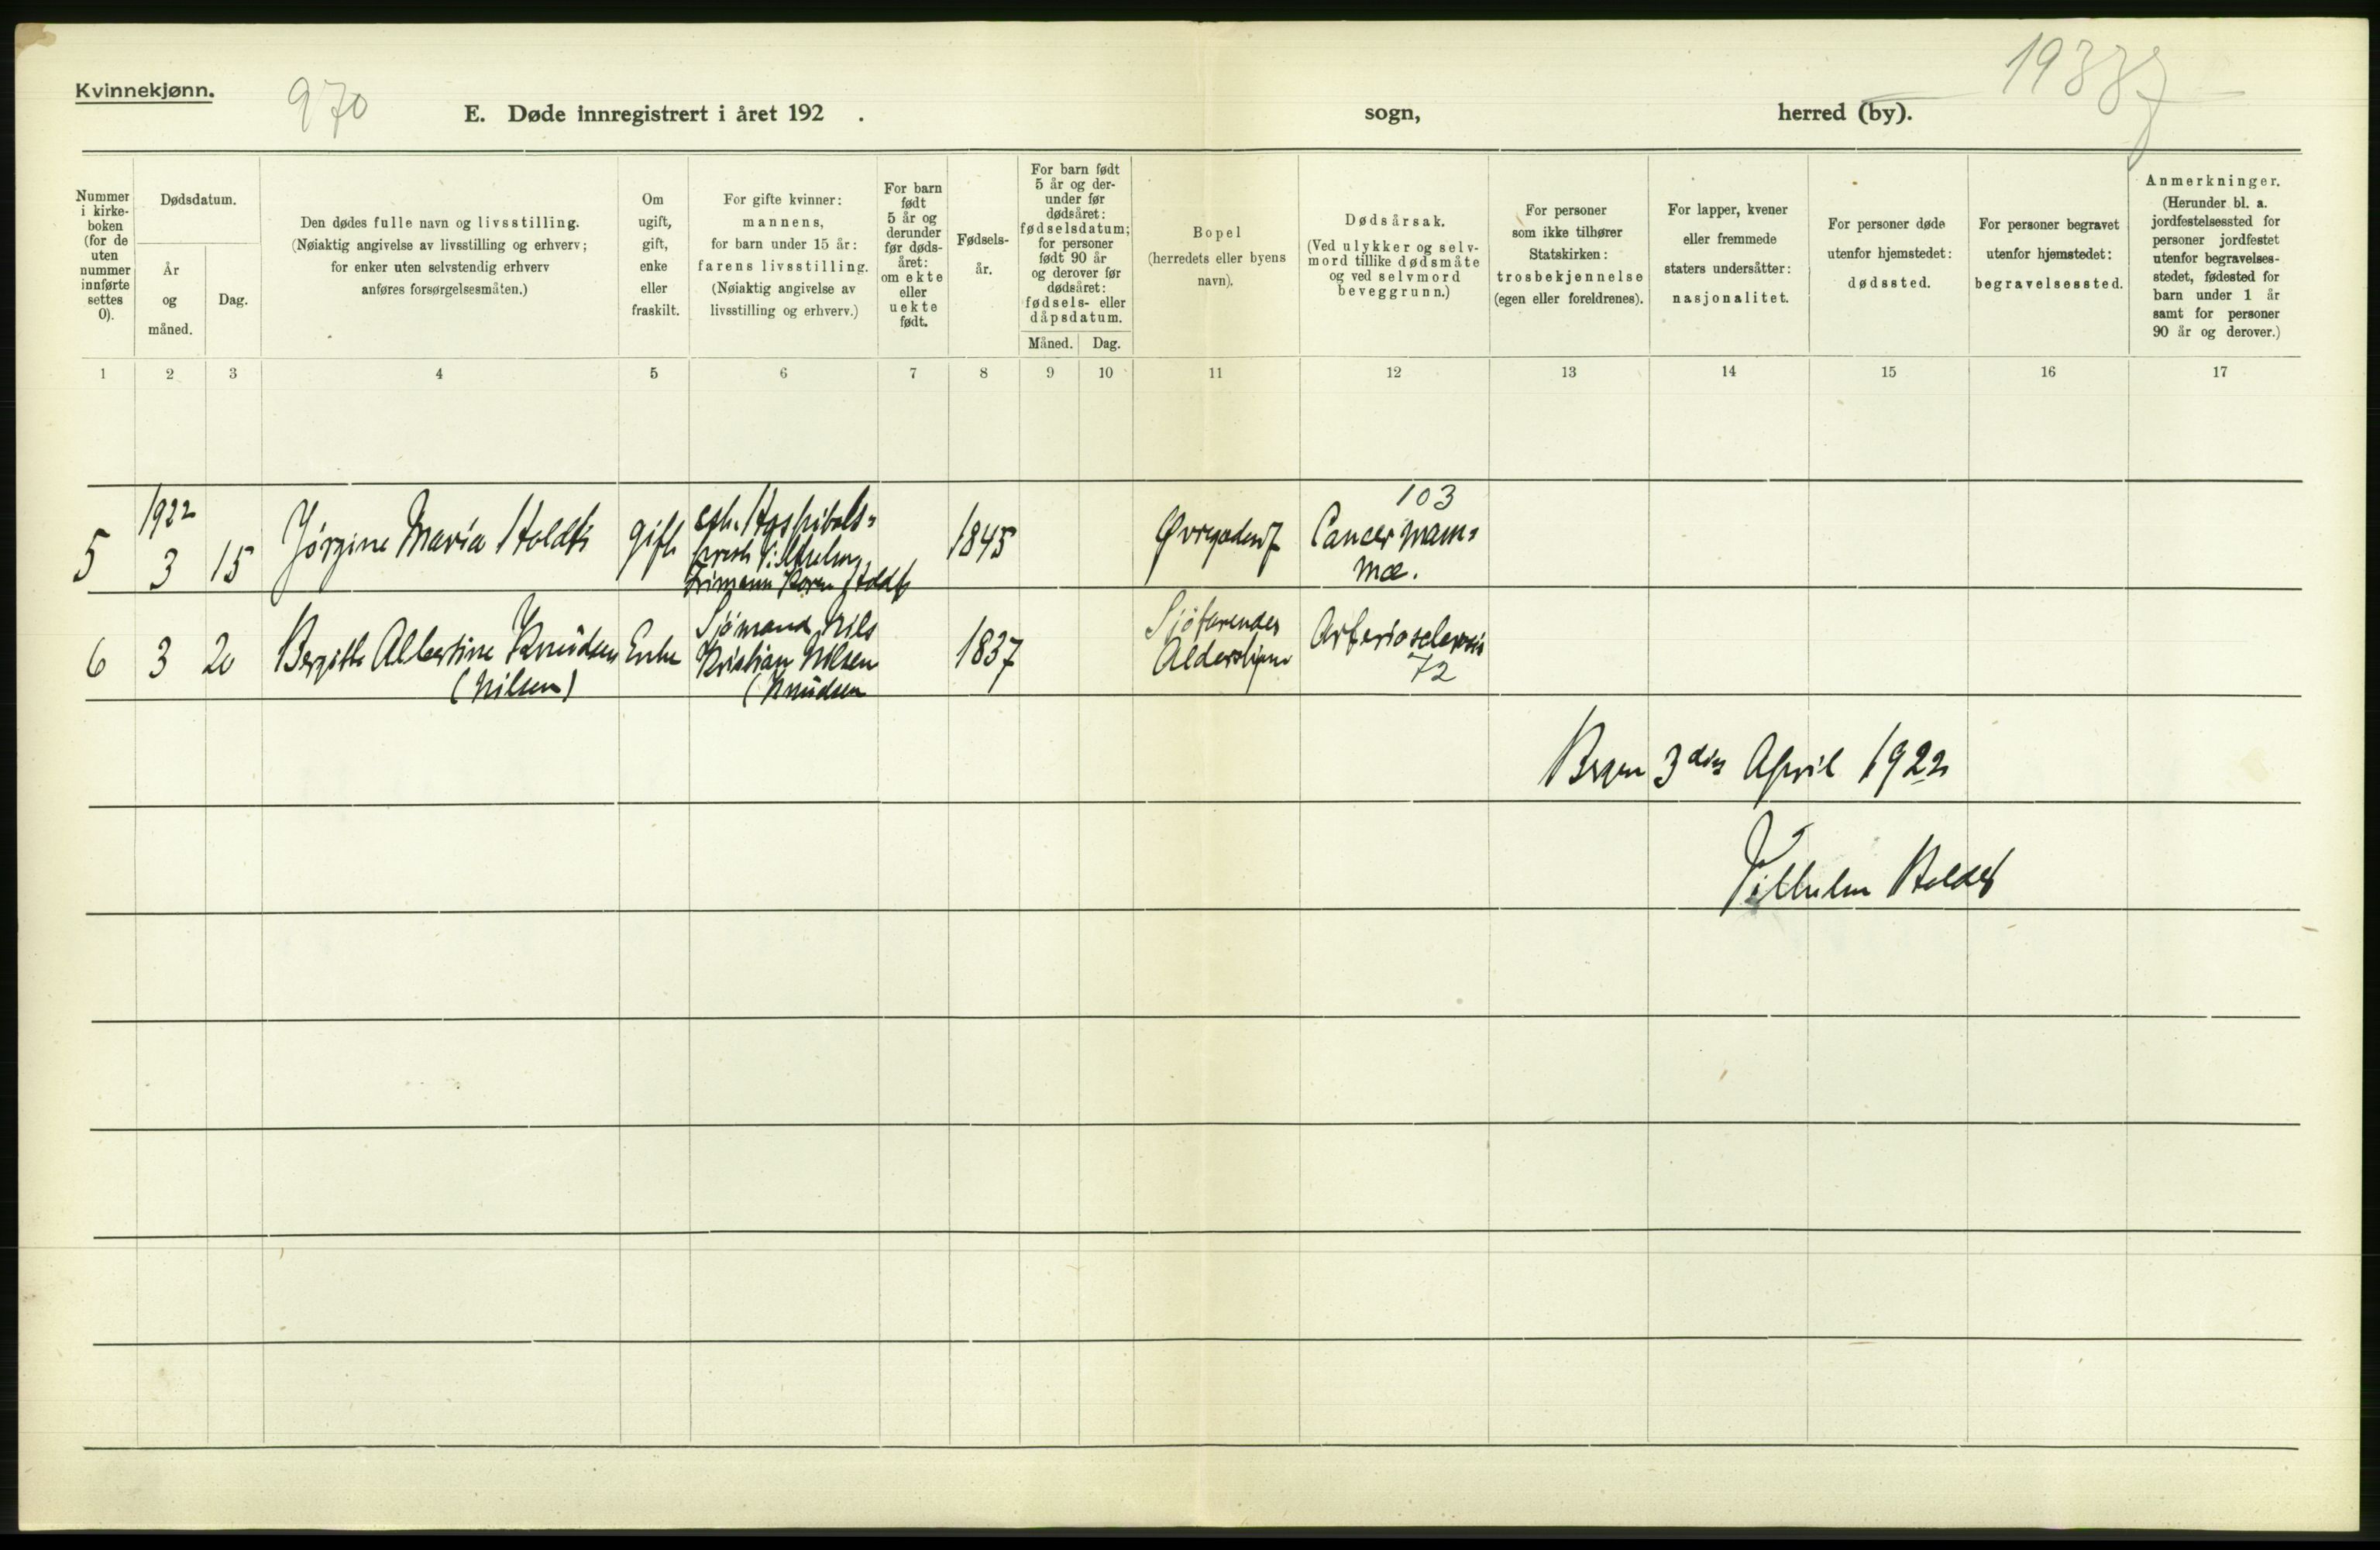 Kvinnekjønn.
970
E. Døde innregistrert i året 192 .
sogn,
herred (by).
Nummer
i kirke-
boken
(for de
uten
nummer
innførte
settes
0).
Dødsdatum.
År
og
måned.
Dag.
Den dødes fulle navn og livsstilling.
(Nøiaktig angivelse av livsstilling og erhverv;
for enker uten selvstendig erhverv
anføres forsørgelsesmåten.)
Om
ugift,
gift,
enke
eller
fraskilt.
For gifte kvinner:
mannens,
for barn under 15 år:
farens livsstilling.
(Nøiaktig angivelse av
livsstilling og erhverv.)
For barn
født
5 år og
derunder
før døds-
året:
om ekte
eller
uekte
født.
Fødsels-
år.
For barn født
5 år og der-
under før
dødsåret:
fødselsdatum;
for personer
født 90 år
og derover før
dødsåret:
fødsels- eller
dåpsdatum.
Måned.
Dag.
Bopel
(herredets eller byens
navn).
Dødsårsak.
(Ved ulykker og selv-
mord tillike dødsmåte
og ved selvmord
beveggrunn.)
For personer
som ikke tilhører
Statskirken:
trosbekjennelse
(egen eller foreldrenes).
For lapper, kvener
eller fremmede
staters undersåtter:
nasjonalitet.
For personer døde
utenfor hjemstedet:
dødssted.
For personer begravet
utenfor hjemstedet:
begravelsessted.
Anmerkninger.
(Herunder bl. a.
jordfestelsessted for
personer jordfestet
utenfor begravelses-
stedet, fødested for
barn under 1 år
samt for personer
90 år og derover.)
1 2 3 4 5 6 7 8 9 10 11 12 13 14 15 16 17
1922
5 3 15
Jörgine Maria Holdt
gift
Hospitals-
prest Vilhelm
Koren Holdt
1845
Øvregaden 7
103
Cancer mam-
mæ.
6 3 20
Bergitte Albertine Knudsen
(Nilsen)
Enke
Sjömand Nils
Kristian Nilsen
(Knudsen
1837
Sjöfarendes
Aldershjem
Arteriosclerosis
72
Bergen 3die April 1922
Vilhelm Holdt